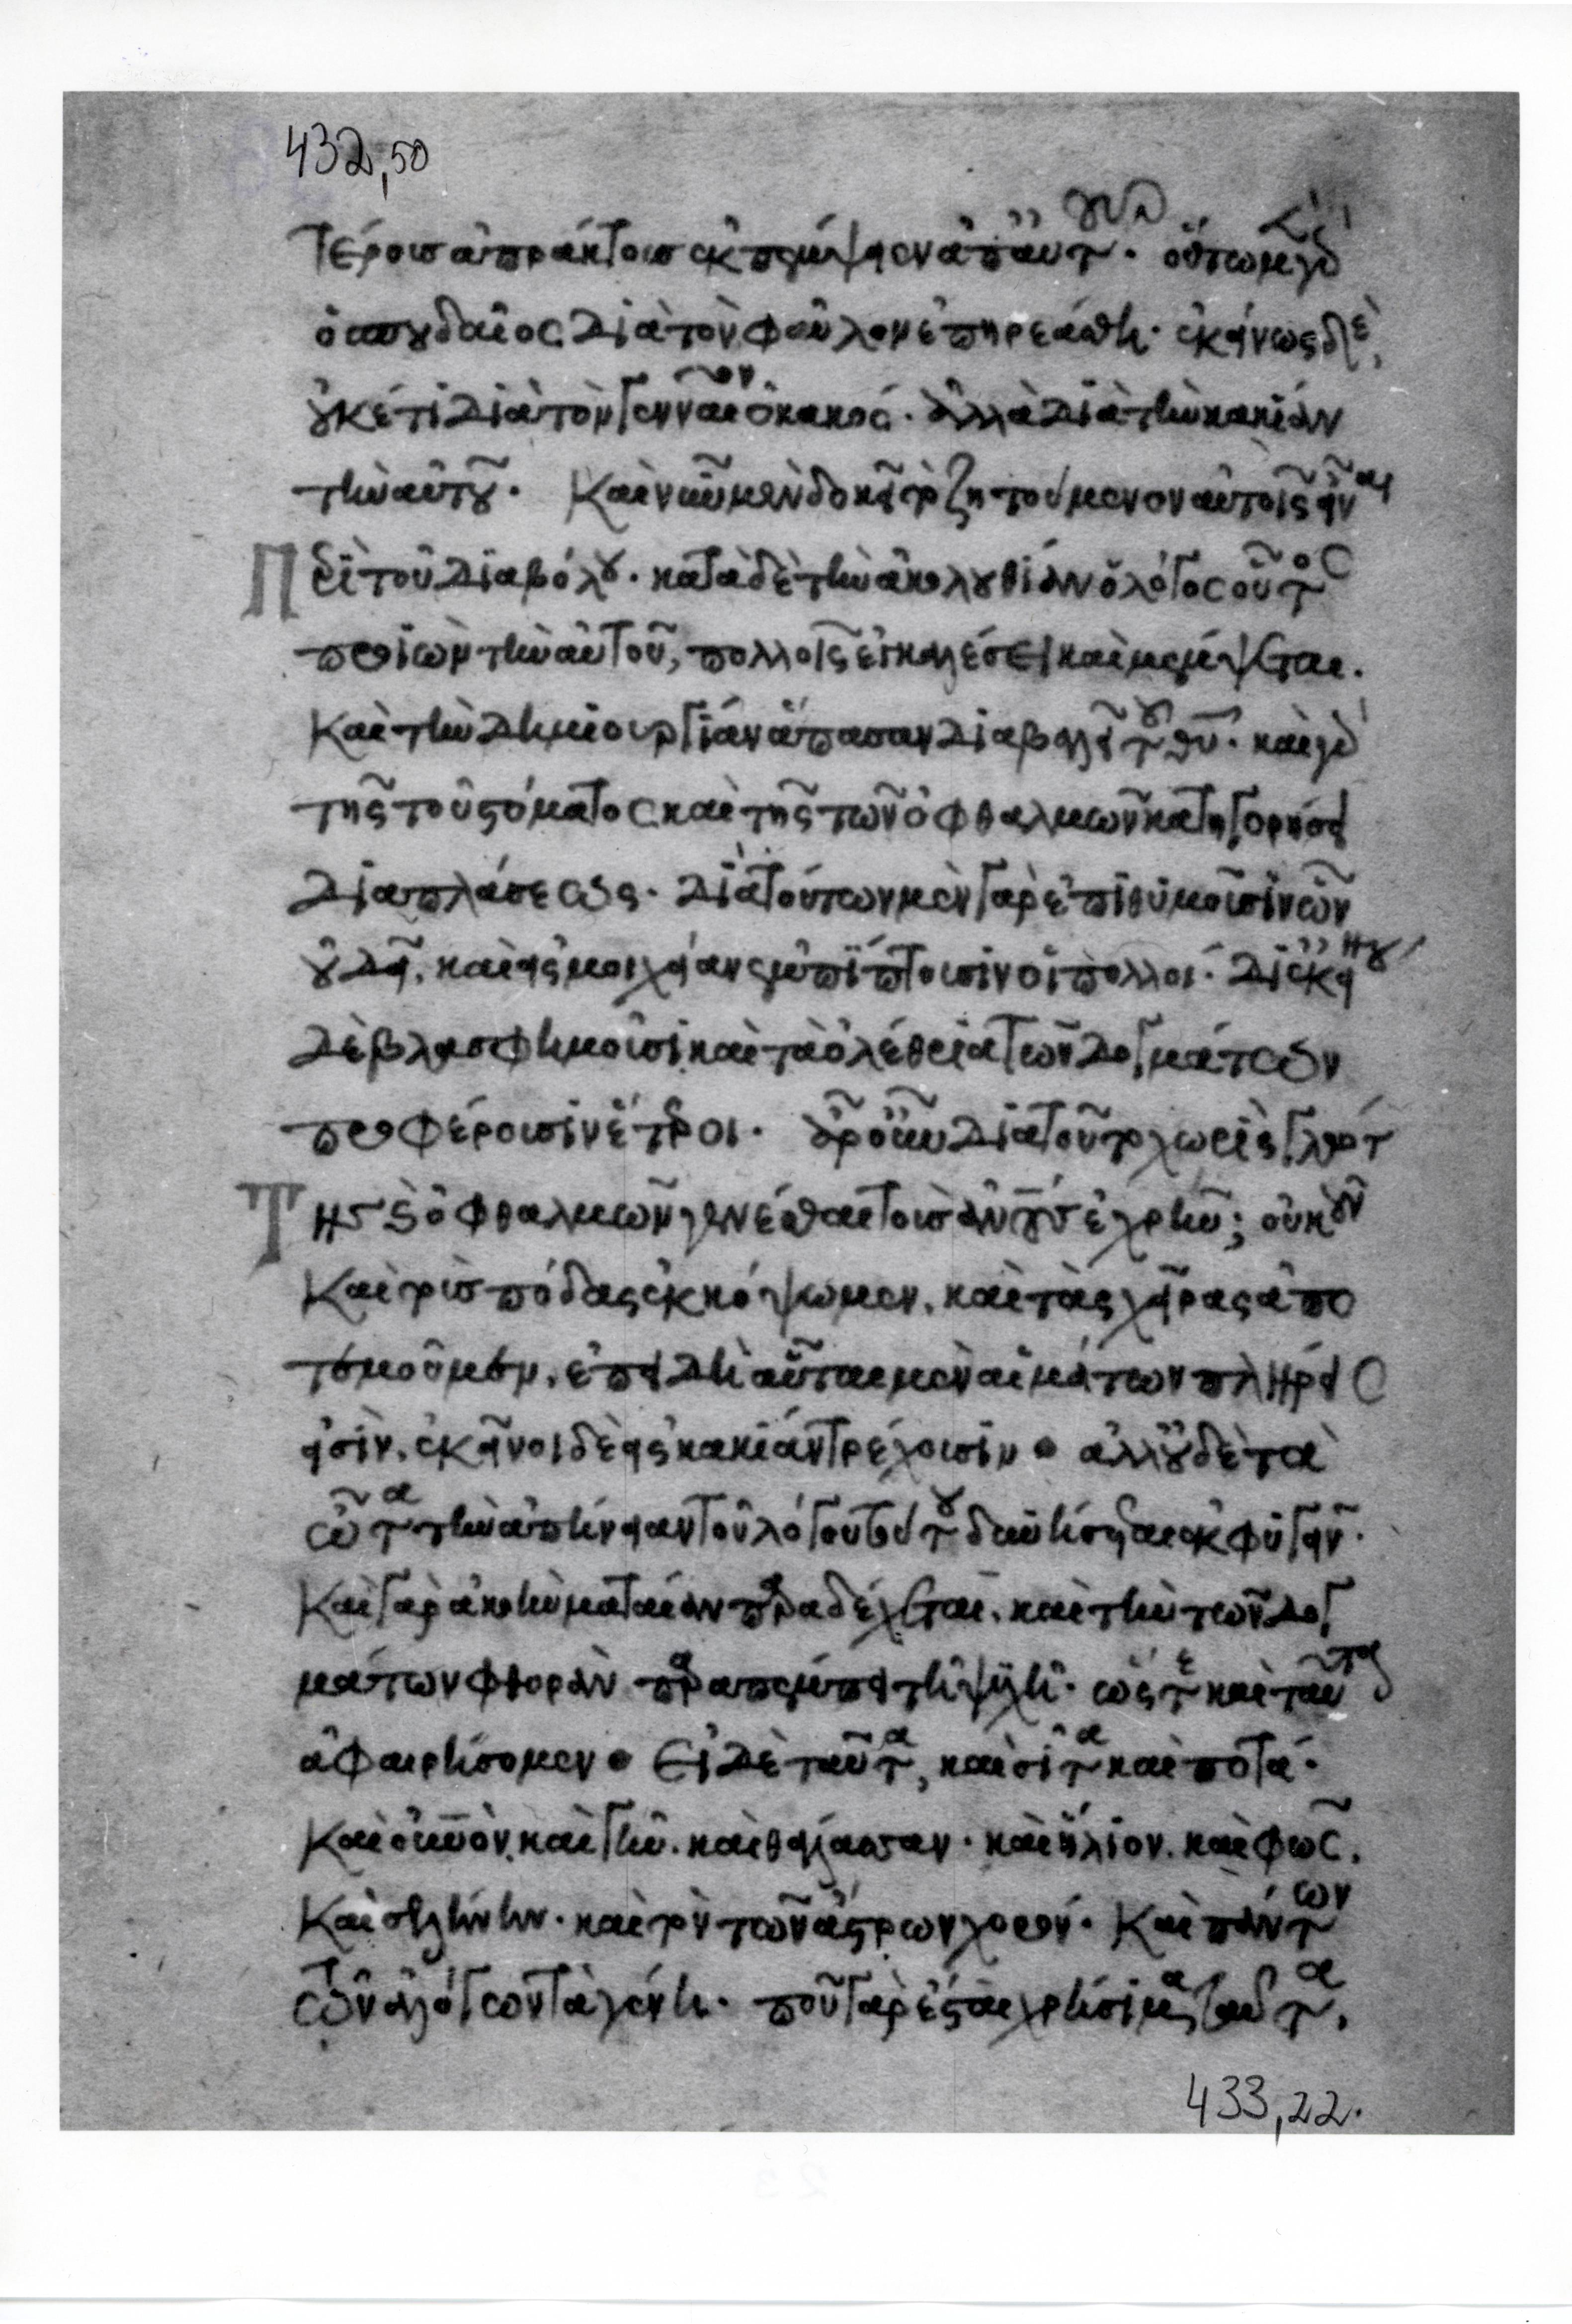 432,50
τέροις ἀπράκτοις ἐκπέμψειεν ἅπαντ. οὕτω μὲν
ὁ σπουδαῖος διὰ τὸν φαῦλον ἐπηρεάσθη. ἐκεῖνος δὲ
οὐκέτι διὰ τὸν γενναῖον ὁ κακός. ἀλλὰ διὰ τὴν κακίαν
τὴν αὐτοῦ. Καὶ νῦν μὲν δοκεῖ τὸ ζητούμενον αὐτοῖς εἶναι
Περὶ τοῦ διαβόλου. κατὰ δὲ τὴν ἀκολουθίαν ὁ λόγος οὗτος
προϊὼν τὴν αὐτοῦ, πολλοῖς ἐγκαλέσει καὶ μέμψεται.
Καὶ τὴν δημιουργίαν ἅπασαν διαβαλεῖ τοῦ θυ. καὶ γὰρ
τῆς τοῦ στόματος καὶ τῆς τῶν ὀφθαλμῶν κατηγορήσει
διαπλάσεως. διὰ τούτων μὲν γὰρ ἐπιθυμοῦσιν ὧν
οὐ δεῖ. καὶ εἰς μοιχείαν ἐμπίπτουσιν οἱ πολλοί. δι' ἐκείνου
δὲ βλασφημοῦσι καὶ τὰ ὀλέθρια τῶν δογμάτων
προφέρουσιν ἕτεροι. ἆρ' οὖν διὰ τοῦτο χωρὶς γλώττης
καὶ ὀφθαλμῶν γενέσθαι τοὺς ἀνους ἐχρῆν; οὐκοῦν
Καὶ τοὺς πόδας ἐκκόψωμεν. καὶ τὰς χεῖρας ἀπο
τέμωμεν. ἐπειδὴ αὗται μὲν αἱμάτων πλήρεις
εἰσίν. ἐκεῖνοι δὲ εἰς κακίαν τρέχουσιν. ἀλλ' οὐδὲ τὰ
ὦτα τὴν ἀπήνειαν τοῦ λόγου τούτου δυνήσεται ἐκφυγεῖν.
Καὶ γὰρ ἀκοὴν ματαίαν παραδέχεται. καὶ τὴν τῶν δογ
μάτων φθορὰν παραπέμπει τῇ ψυχῇ. ὥστε καὶ ταῦτα
ἀφαιρήσομεν. Εἰ δὲ ταῦτα, καὶ σιτία καὶ ποτά.
Καὶ οὐνὸν. καὶ γῆν. καὶ θάλασσαν. καὶ ἥλιον. καὶ φῶς.
Καὶ σελήνην. καὶ τὸν τῶν ἄστρων χορόν. Καὶ πάντων
τῶν ἀλόγων τὰ γένη. ποῦ γὰρ ἔσται χρήσιμα ταῦτα,
433,22.